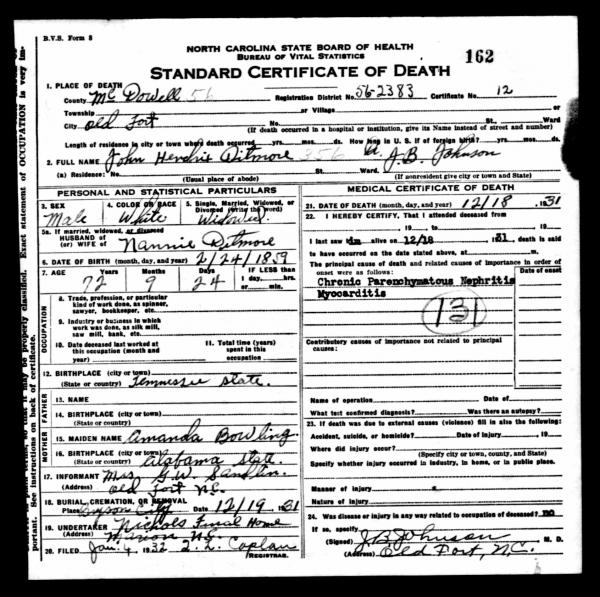 B.V.S. Form 8
NORTH CAROLINA STATE BOARD OF HEALTH
BUREAU OF VITAL STATISTICS
162
STANDARD CERTIFICATE OF DEATH
1. PLACE OF DEATH
County McDowell 56 Registration District No. 56-2383 Certificate No. 12
Township or Village or
City Old Fort No. St. Ward
(If death occurred in a hospital or institution, give its Name instead of street and number)
Length of residence in city or town where death occurred yrs. mos. ds. How long in U. S. if of foreign birth? yrs. mos. ds.
2. FULL NAME John Hendrix Ditmore 356 J.B. Johnson
(a) Residence: No. St. Ward.
(Usual place of abode) (If nonresident give city or town and State)
PERSONAL AND STATISTICAL PARTICULARS
3. SEX Male
4. COLOR OR RACE White
5. Single, Married, Widowed, or Divorced (write the word) Widowed
5a. If married, widowed, or divorced
HUSBAND of
(or) WIFE of Nannie Ditmore
6. DATE OF BIRTH (month, day, and year) 2/24/1859
7. AGE Years Months Days IF LESS than
72 9 24 1 day, hrs.
or min.
OCCUPATION
8. Trade, profession, or particular
kind of work done, as spinner,
sawyer, bookkeeper, etc.
9. Industry or business in which
work was done, as silk mill,
saw mill, bank, etc.
10. Date deceased last worked at
this occupation (month and
year)
11. Total time (years)
spent in this
occupation
12. BIRTHPLACE (city or town)
(State or country) Tennessee State.
FATHER
13. NAME
14. BIRTHPLACE (city or town)
(State or country)
MOTHER
15. MAIDEN NAME Amanda Bowling
16. BIRTHPLACE (city or town)
(State or country) Alabama State.
17. INFORMANT Mrs G.W. Sandlin
Old Fort N.C.
18. BURIAL, CREMATION, OR REMOVAL
Place Bryson City Date 12/19 1931
19. UNDERTAKER Nichols Funeral Home
(Address) Marion N.C.
20. FILED Jan. 4, 1932 Caplan
REGISTRAR.
MEDICAL CERTIFICATE OF DEATH
21. DATE OF DEATH (month, day, and year) 12/18, 1931
22. I HEREBY CERTIFY, That I attended deceased from
, 19 to , 19
I last saw him alive on 12/18 1931, death is said
to have occurred on the date stated above, at m.
The principal cause of death and related causes of importance in order of
onset were as follows: Date of onset
Chronic Parenchymatous Nephritis
Myocarditis
131
Contributory causes of importance not related to principal
causes:
Name of operation Date of
What test confirmed diagnosis? Was there an autopsy?
23. If death was due to external causes (violence) fill in also the following:
Accident, suicide, or homicide? Date of injury , 19
Where did injury occur?
(Specify city or town, county, and State)
Specify whether injury occurred in industry, in home, or in public place.
Manner of injury
Nature of injury
24. Was disease or injury in any way related to occupation of deceased? no
If so, specify
(Signed) J.B. Johnson M. D.
(Address) Old Fort, N.C.
portant. See instructions on back of certificate.
properly classified. Exact statement of OCCUPATION is very im-